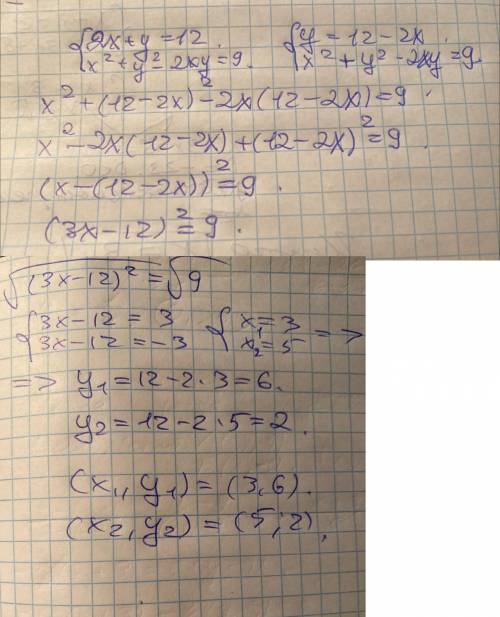 {2x+y=12. {y=12-2x
{x²+y²-2xy=9. {x²+y²-2xy=9.
x²+(12-2x)²-2x(12-2x)=9.
x²-2x(12-2x)+(12-2x)²=9.
(x-(12-2x))²=9.
(3x-12)²=9.
√(3x-12)²=√9
{3x-12=3 {x₁=3
{3x-12=-3 {x₂=5 =>
=> y₁=12-2·3=6.
y₂=12-2·5=2.
(x₁,y₁)=(3,6).
(x₂,y₂)=(5;2),